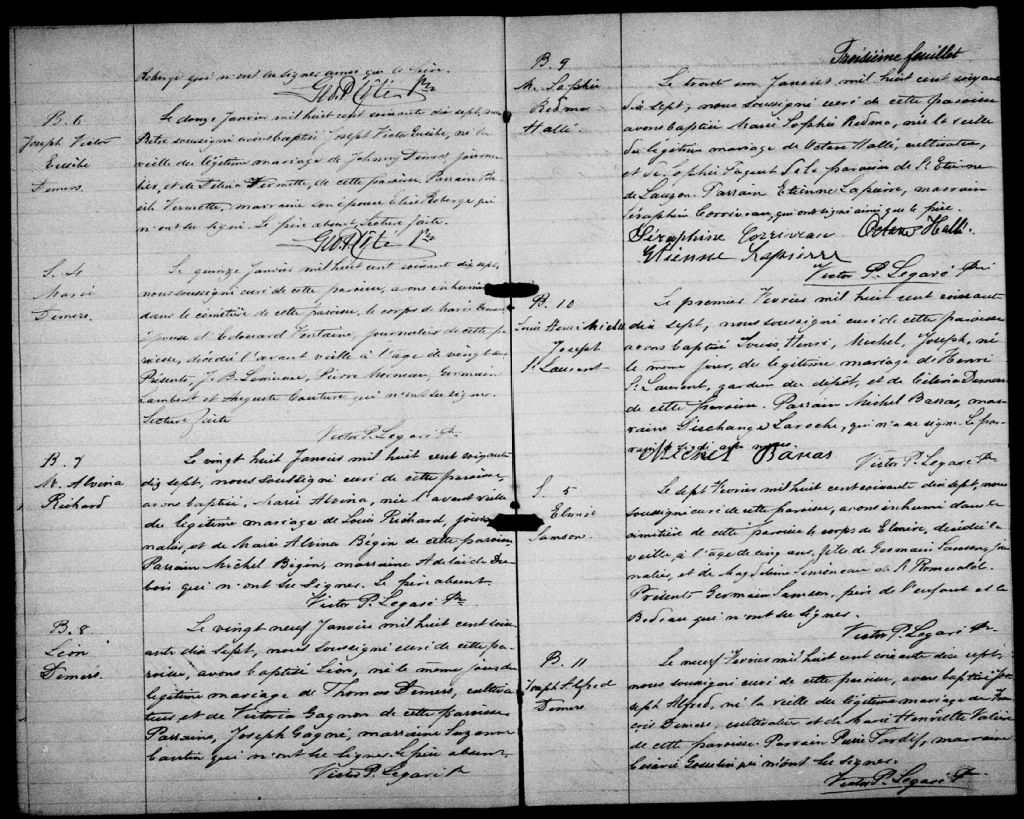 Roberge qui n'ont su signer ainsi que le père.
Geo. P. Côté Ptre
B. 6
Joseph Victor
Eusèbe
Demers.
Le douze Janvier mil huit cent soixante dix sept, nous
Prêtre soussigné avons baptisé Joseph Victor Eusèbe, né la
veille du légitime mariage de Johnny Demers, journa-
lier, et de Délina Vermette, de cette paroisse. Parrain
Vermette, marraine son épouse Elise Roberge, qui
n'ont su signé. Le père absent, Lecture faite.
Geo. P. Côté Ptre
S. 4
Marie
Demers.
Le quinze Janvier mil huit cent soixante dix sept,
nous soussigné curé de cette paroisse, avons inhumé
dans le cimetière de cette paroisse, le corps de Marie Demers
épouse d'Edouard Fontaine, journalier de cette pa-
roisse, décédée l'avant veille à l'âge de vingt ans
Présents, J. B. Lemieux, Pierre Morneau, Germain
Lambert et Auguste Couture qui n'ont su signer.
Lecture faite
Victor P. Legaré Ptr
B. 7
M. Alvina
Richard
Le vingt huit Janvier mil huit cent soixante
dix sept, nous soussigné curé de cette paroisse,
avons baptisé, Marie Alvina, née l'avant veille
du légitime mariage de Louis Richard, jour-
nalier, et de Marie Alvina Bégin de cette paroisse.
Parrain Michel Bégin, marraine Adelaide Du-
bois qui n'ont su signer. Le père absent
Victor P. Legaré Ptre
B. 8
Léon
Demers.
Le vingt neuf Janvier mil huit cent soix-
ante dix sept, nous soussigné curé de cette pa-
roisse, avons baptisé Léon, né le même jour du
légitime mariage de Thomas Demers, cultiva-
teur et de Victoria Gagnon de cette paroisse
Parrain, Joseph Gagné, marraine Suzanne
Cantin qui n'ont su signer. Le père absent.
Victor P. Legaré Ptr
Troisième feuillet
B. 9
M. Sophie
Redma
Hallé.
Le trente un Janvier mil huit cent soixante
dix sept, nous soussigné curé de cette paroisse
avons baptisé Marie Sophie Redma, née la veille
du légitime mariage de Octave Hallé, cultivateur,
et de Sophie Paquet de la paroisse de St Etienne
de Lauzon. Parrain Etienne Lapierre, marraine
Séraphine Corriveau, qui ont signé ainsi que le père.
Séraphine Corriveau Octave Hallé.
Etienne Lapierre
Victor P. Legaré Ptr
B. 10
Louis Henri Michel
Joseph
St Laurent
Le premier Février mil huit cent soixante
dix sept, nous soussigné curé de cette paroisse
avons baptisé Louis, Henri, Michel, Joseph, né
le même jour, du légitime mariage de Henri
St Laurent, gardien du dépôt, et de Célina Demers
de cette paroisse. Parrain Michel Barras, mar-
raine Laroche, qui n'a su signer. Le par-
rain a signé avec nous.
Michel Barras
Victor P. Legaré Ptr
S. 5
Elmire
Samson.
Le sept Février mil huit cent soixante dix sept, nous
soussigné curé de cette paroisse, avons inhumé dans le
cimetière de cette paroisse le corps de Elmire, décédée la
veille à l'âge de cinq ans, fille de Germain Samson, jour-
nalier, et de Magdeleine Simoneau de St Romuald.
Présents Germain Samson, père de l'enfant et le
Bedeau qui n'ont su signer.
Victor P. Legaré Ptr
B. 11
Joseph Alfred
Demers
Le neuf Février mil huit cent soixante dix sept,
nous soussigné curé de cette paroisse, avons baptisé Jo-
seph Alfred, né la veille du légitime mariage de Fran-
çois Demers, cultivateur et de Marie Henriette Valière
de cette paroisse. Parrain Pierre Tardif, marraine
Gosselin qui n'ont su signer.
Victor P. Legaré Ptr.